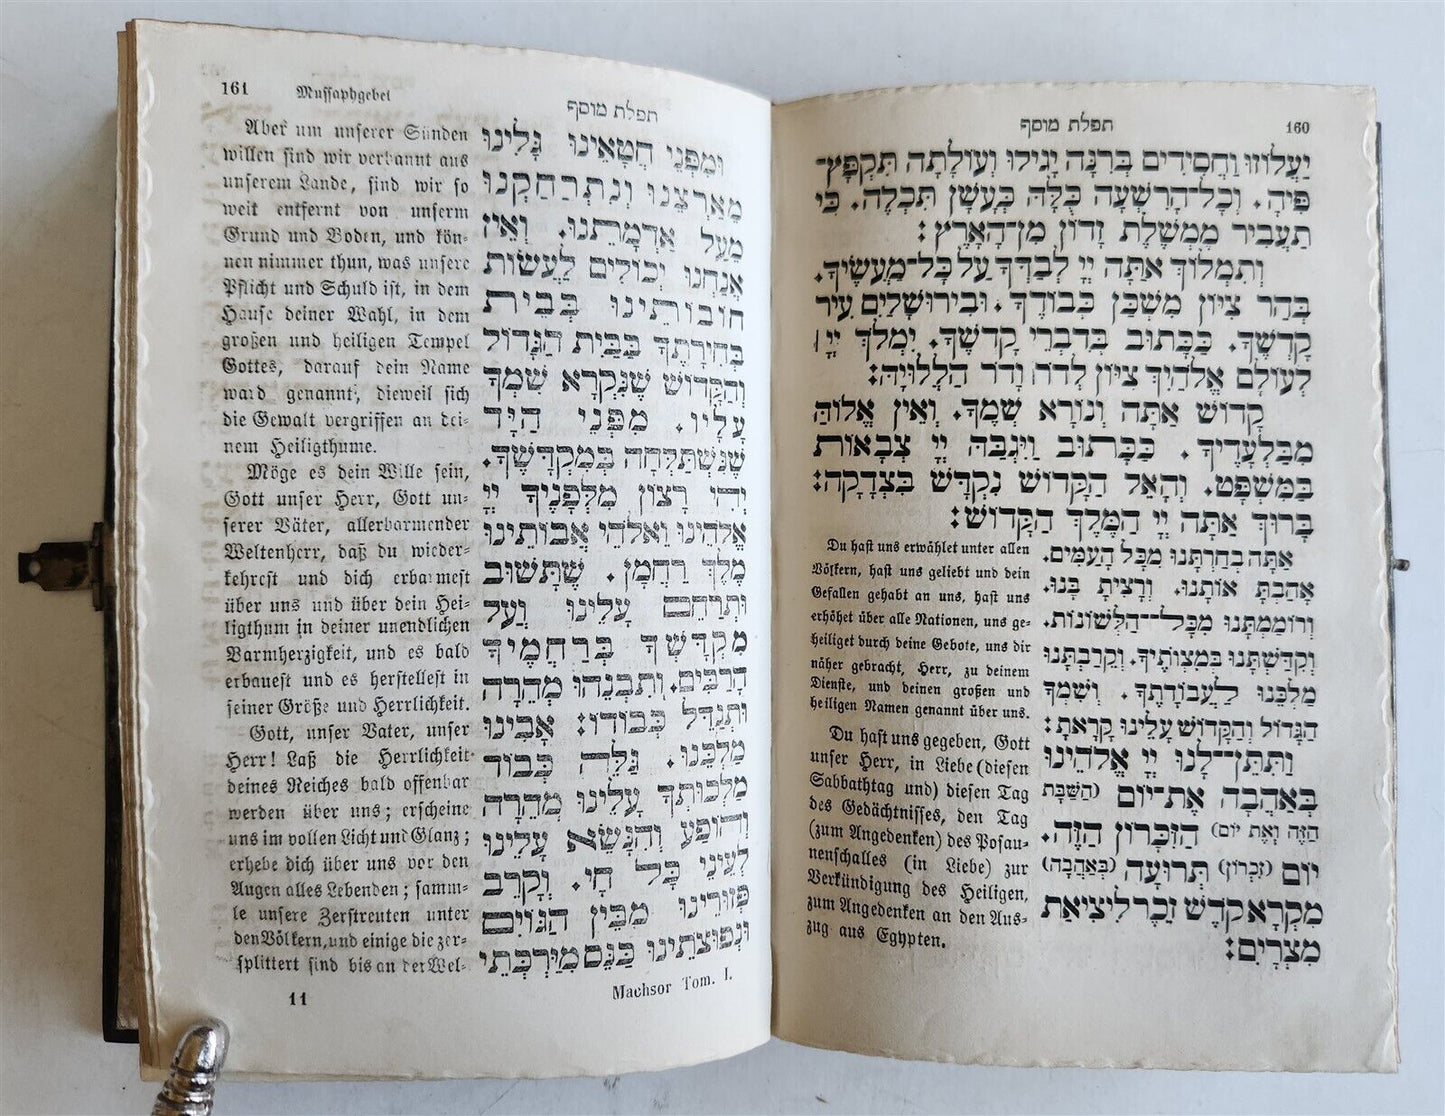 תפלת מוסף 160
יַעֲלוֹזוּ וַחֲסִידִים בְּרִנָּה יָגִילוּ וְעוֹלָתָה תִּקְפָּץ־
פִּיהָ. וְכָל־הָרִשְׁעָה כֻּלָּהּ כְּעָשָׁן תִּכְלֶה. כִּי
תַעֲבִיר מֶמְשֶׁלֶת זָדוֹן מִן־הָאָרֶץ:
וְתִמְלוֹךְ אַתָּה יְיָ לְבַדְּךָ עַל כָּל־מַעֲשֶׂיךָ.
בְּהַר צִיּוֹן מִשְׁכַּן כְּבוֹדֶךָ. וּבִירוּשָׁלַיִם עִיר
קָדְשֶׁךָ. כַּכָּתוּב בְּדִבְרֵי קָדְשֶׁךָ. יִמְלֹךְ יְיָ
לְעוֹלָם אֱלֹהַיִךְ צִיּוֹן לְדֹר וָדֹר הַלְלוּיָהּ:
קָדוֹשׁ אַתָּה וְנוֹרָא שְׁמֶךָ. וְאֵין אֱלוֹהַּ
מִבַּלְעָדֶיךָ. כַּכָּתוּב וַיִּגְבַּהּ יְיָ צְבָאוֹת
בַּמִּשְׁפָּט. וְהָאֵל הַקָּדוֹשׁ נִקְדַּשׁ בִּצְדָקָה:
בָּרוּךְ אַתָּה יְיָ הַמֶּלֶךְ הַקָּדוֹשׁ:
אַתָּה בְחַרְתָּנוּ מִכָּל הָעַמִּים.
אָהַבְתָּ אוֹתָנוּ. וְרָצִיתָ בָּנוּ.
וְרוֹמַמְתָּנוּ מִכָּל־הַלְּשׁוֹנוֹת.
וְקִדַּשְׁתָּנוּ בְּמִצְוֹתֶיךָ. וְקֵרַבְתָּנוּ
מַלְכֵּנוּ לַעֲבוֹדָתֶךָ. וְשִׁמְךָ
הַגָּדוֹל וְהַקָּדוֹשׁ עָלֵינוּ קָרָאתָ:
וַתִּתֶּן־לָנוּ יְיָ אֱלֹהֵינוּ
בְּאַהֲבָה אֶת־יוֹם (הַשַּׁבָּת
הַזֶּה וְאֶת יוֹם) הַזִּכָּרוֹן הַזֶּה.
יוֹם (זִכְרוֹן) תְּרוּעָה (בְּאַהֲבָה)
מִקְרָא קֹדֶשׁ זֵכֶר לִיצִיאַת
מִצְרָיִם:
Du hast uns erwählet unter allen
Völkern, hast uns geliebt und dein
Gefallen gehabt an uns, hast uns
erhöhet über alle Nationen, uns ge-
heiliget durch deine Gebote, uns dir
näher gebracht, Herr, zu deinem
Dienste, und deinen großen und
heiligen Namen genannt über uns.
Du hast uns gegeben, Gott
unser Herr, in Liebe (diesen
Sabbathtag und) diesen Tag
des Gedächtnisses, den Tag
(zum Angedenken) des Posau-
nenschalles (in Liebe) zur
Verkündigung des Heiligen,
zum Angedenken an den Aus-
zug aus Egypten.
161 Mussaphgebet תפלת מוסף
וּמִפְּנֵי חֲטָאֵינוּ גָּלִינוּ
מֵאַרְצֵנוּ וְנִתְרַחַקְנוּ
מֵעַל אַדְמָתֵנוּ. וְאֵין
אֲנַחְנוּ יְכוֹלִים לַעֲשׂוֹת
חוֹבוֹתֵינוּ בְּבֵית
בְּחִירָתֶךָ בַּבַּיִת הַגָּדוֹל
וְהַקָּדוֹשׁ שֶׁנִּקְרָא שִׁמְךָ
עָלָיו. מִפְּנֵי הַיָּד
שֶׁנִּשְׁתַּלְּחָה בְּמִקְדָּשֶׁךָ.
יְהִי רָצוֹן מִלְּפָנֶיךָ יְיָ
אֱלֹהֵינוּ וֵאלֹהֵי אֲבוֹתֵינוּ
מֶלֶךְ רַחֲמָן. שֶׁתָּשׁוּב
וּתְרַחֵם עָלֵינוּ וְעַל
מִקְדָּשְׁךָ בְּרַחֲמֶיךָ
הָרַבִּים. וְתִבְנֵהוּ מְהֵרָה
וּתְגַדֵּל כְּבוֹדוֹ: אָבִינוּ
מַלְכֵּנוּ. גַּלֵּה כְּבוֹד
מַלְכוּתְךָ עָלֵינוּ מְהֵרָה
וְהוֹפַע וְהִנָּשֵׂא עָלֵינוּ
לְעֵינֵי כָּל חָי. וְקָרֵב
פְּזוּרֵינוּ מִבֵּין הַגּוֹיִם
וּנְפוּצוֹתֵינוּ כַּנֵּס מִיַּרְכְּתֵי
Aber um unserer Sünden
willen sind wir verbannt aus
unserem Lande, sind wir so
weit entfernt von unserm
Grund und Boden, und kön-
nen nimmer thun, was unsere
Pflicht und Schuld ist, in dem
Hause deiner Wahl, in dem
großen und heiligen Tempel
Gottes, darauf dein Name
ward genannt, dieweil sich
die Gewalt vergriffen an dei-
nem Heiligthume.
Möge es dein Wille sein,
Gott unser Herr, Gott un-
serer Väter, allerbarmender
Weltenherr, daß du wieder-
kehrest und dich erbarmest
über uns und über dein Hei-
ligthum in deiner unendlichen
Barmherzigkeit, und es bald
erbauest und es herstellest in
seiner Größe und Herrlichkeit.
Gott, unser Vater, unser
Herr! Laß die Herrlichkeit
deines Reiches bald offenbar
werden über uns; erscheine
uns im vollen Licht und Glanz;
erhebe dich über uns vor den
Augen alles Lebenden; samm-
le unsere Zerstreuten unter
den Völkern, und einige die zer-
splittert sind bis an der Wel-
11 Machsor Tom. I.